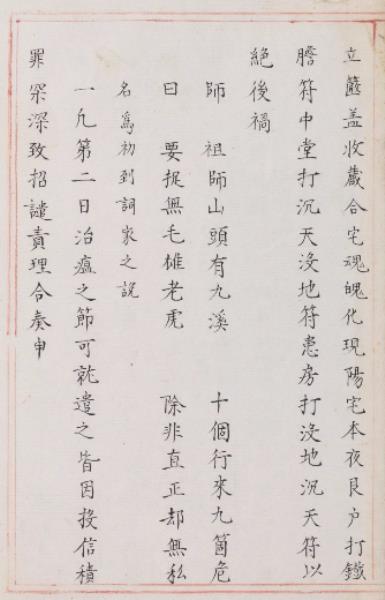 立篋盖收藏合宅魂魄化現陽宅本夜艮户打鐵
牆符中堂打沉天沒地符患房打沒地沉天符以
絕後禍
師　祖師山頭有九溪　十個行來九箇危
曰　要捉無毛雄老虎　除非直正却無私
名為初到詞家之說
一凡第二日治瘟之節可就遣之皆因投信積
罪深致招譴責理合奏申